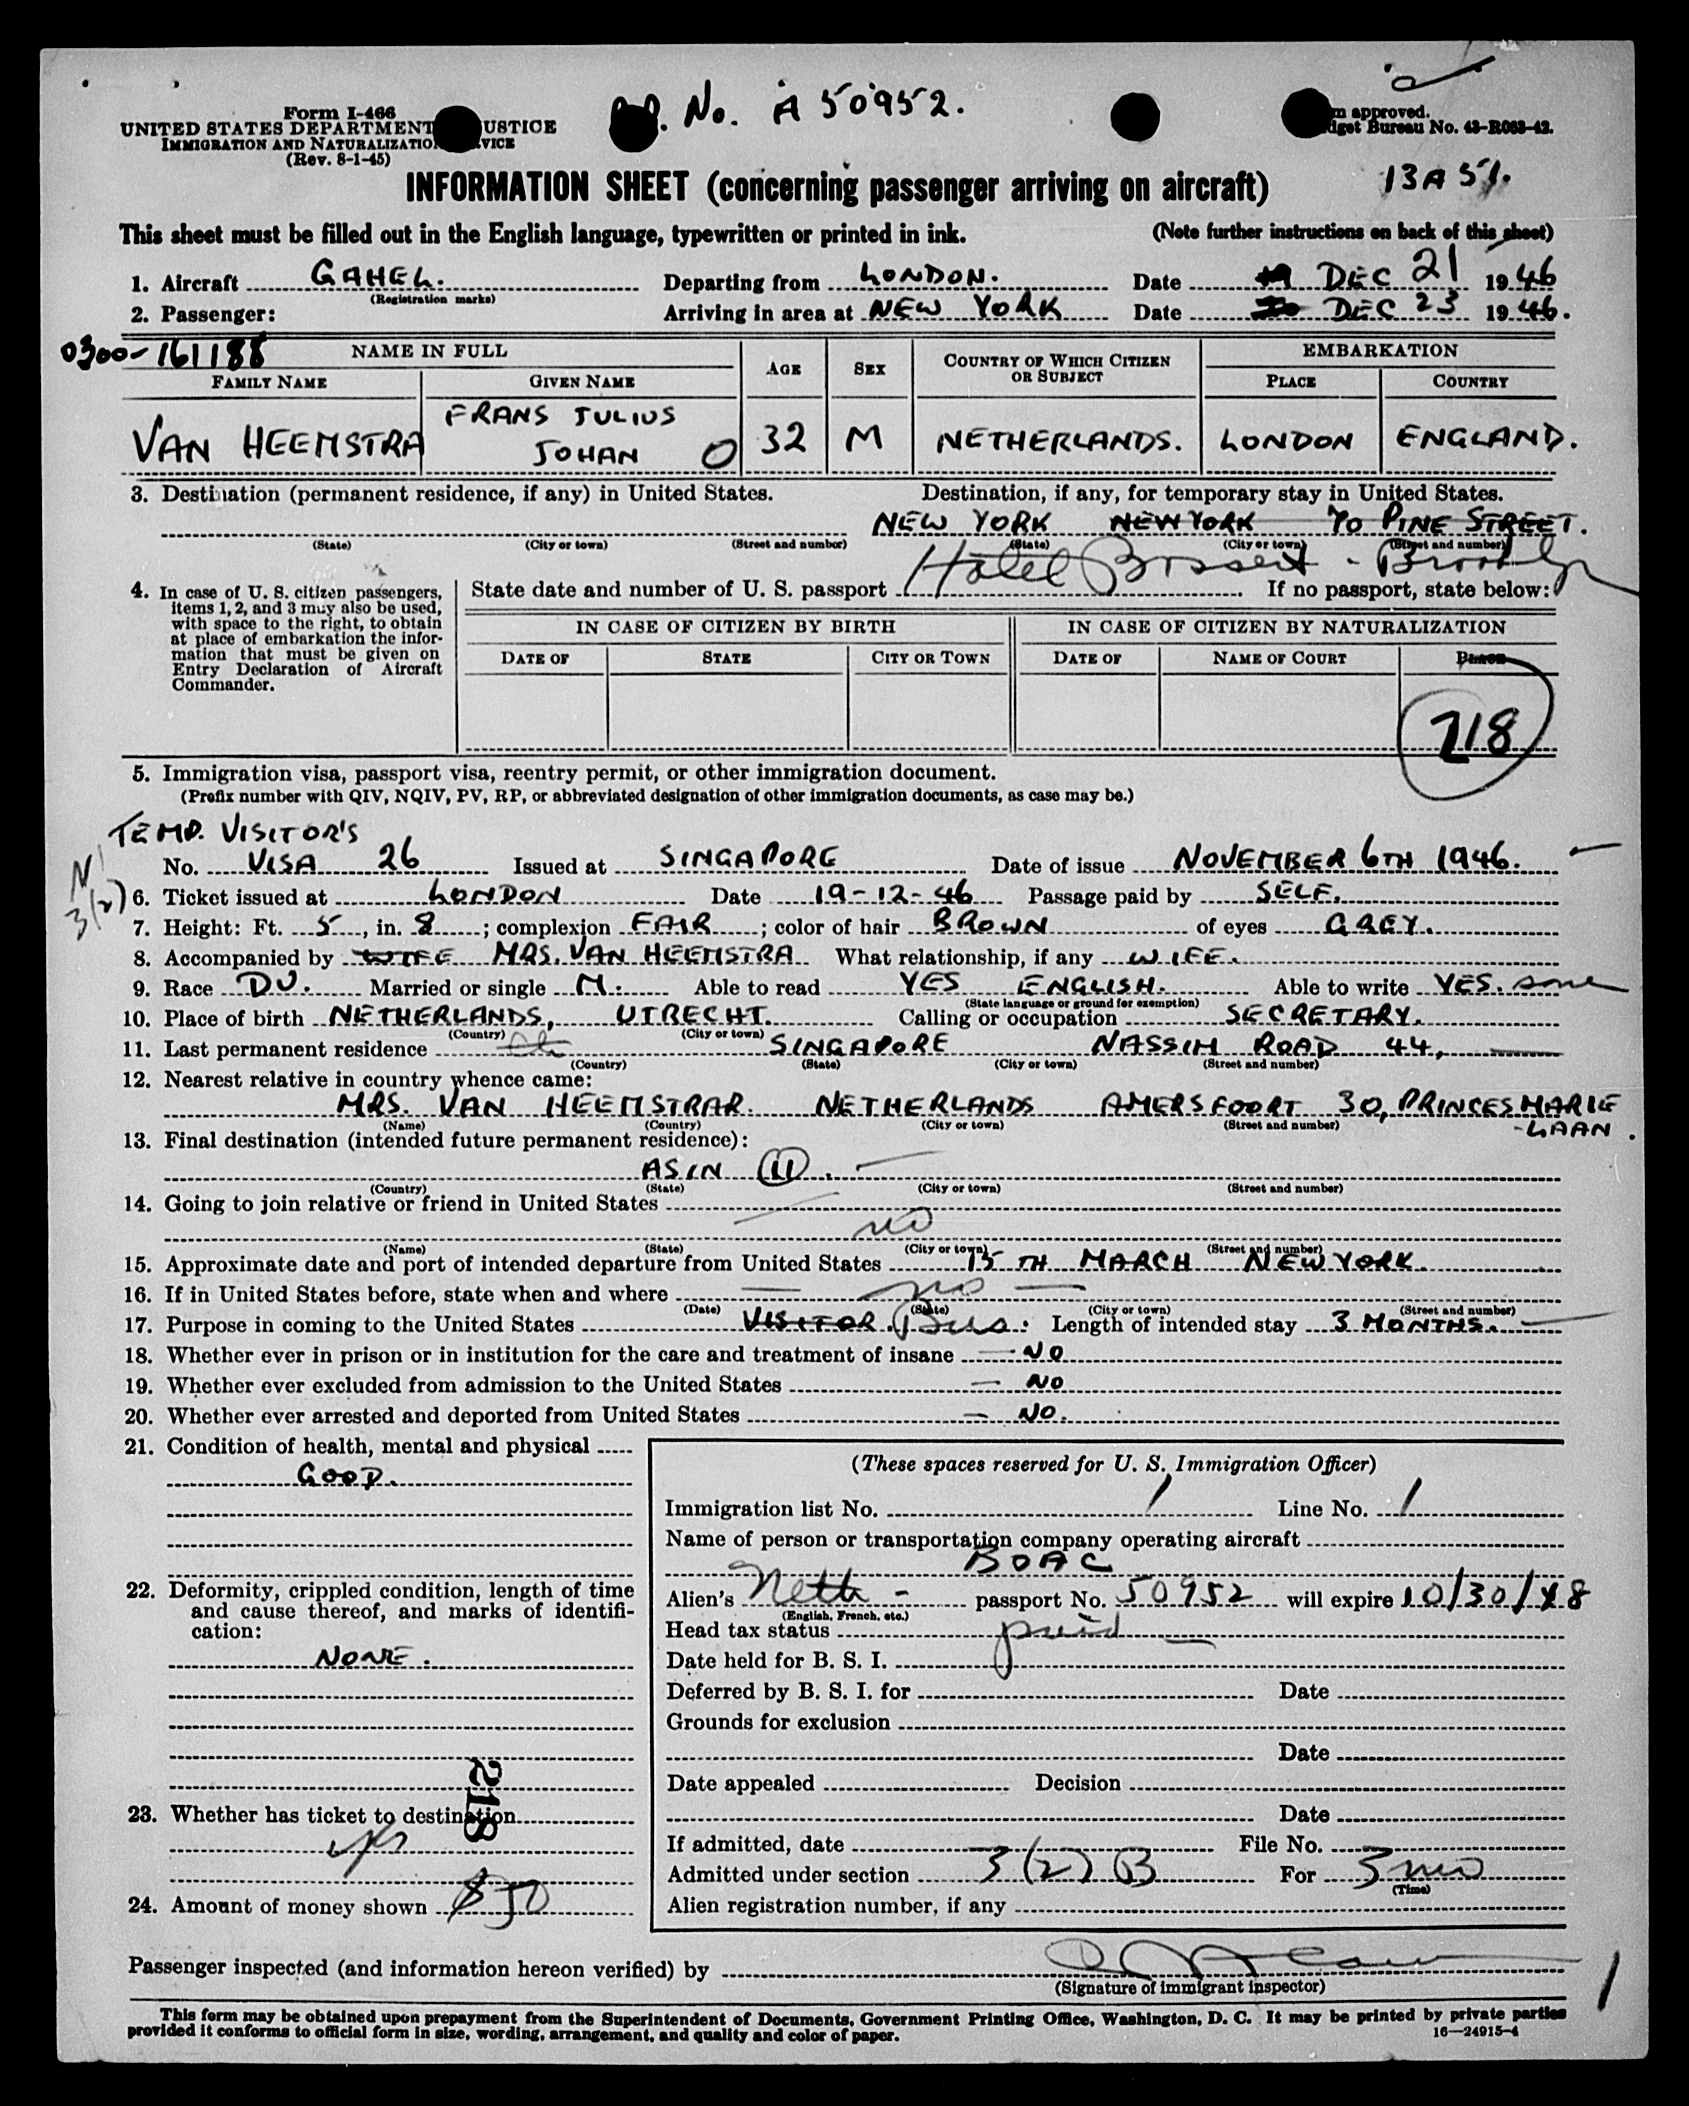 Form I-466
UNITED STATES DEPARTMENT USTICE
IMMIGRATION AND NATURALIZATIO VICE
(Rev. 8-1-45)
P. No. A 50952.
m approved.
dget Bureau No. 43-R063-42.
13A 51.
INFORMATION SHEET (concerning passenger arriving on aircraft)
This sheet must be filled out in the English language, typewritten or printed in ink. (Note further instructions on back of this sheet)
1. Aircraft GAHEL. Departing from LONDON. Date DEC 21 1946
(Registration marks)
2. Passenger: Arriving in area at NEW YORK Date DEC 23 1946.
0300-161188
NAME IN FULL AGE SEX COUNTRY OF WHICH CITIZEN OR SUBJECT EMBARKATION
FAMILY NAME GIVEN NAME PLACE COUNTRY
VAN HEEMSTRA FRANS JULIUS JOHAN O 32 M NETHERLANDS. LONDON ENGLAND.
3. Destination (permanent residence, if any) in United States. Destination, if any, for temporary stay in United States.
NEW YORK NEW YORK 70 PINE STREET.
(State) (City or town) (Street and number) (State) (City or town) (Street and number)
Hotel Bossert - Brooklyn
4. In case of U. S. citizen passengers, items 1, 2, and 3 may also be used, with space to the right, to obtain at place of embarkation the information that must be given on Entry Declaration of Aircraft Commander.
State date and number of U. S. passport If no passport, state below:
IN CASE OF CITIZEN BY BIRTH IN CASE OF CITIZEN BY NATURALIZATION
DATE OF STATE CITY OR TOWN DATE OF NAME OF COURT
218
5. Immigration visa, passport visa, reentry permit, or other immigration document.
(Prefix number with QIV, NQIV, PV, RP, or abbreviated designation of other immigration documents, as case may be.)
TEMP. VISITOR'S
No. VISA 26 Issued at SINGAPORE Date of issue NOVEMBER 6TH 1946.
3(2)
6. Ticket issued at LONDON Date 19-12-46 Passage paid by SELF.
7. Height: Ft. 5, in. 8; complexion FAIR; color of hair BROWN of eyes GREY.
8. Accompanied by WIFE MRS. VAN HEEMSTRA What relationship, if any WIFE.
9. Race DU. Married or single M. Able to read YES ENGLISH. Able to write YES. same
(State language or ground for exemption)
10. Place of birth NETHERLANDS, UTRECHT. Calling or occupation SECRETARY.
(Country) (City or town)
11. Last permanent residence SINGAPORE NASSIM ROAD 44,
(Country) (State) (City or town) (Street and number)
12. Nearest relative in country whence came:
MRS. VAN HEEMSTRAR. NETHERLANDS AMERSFOORT 30, PRINCES MARIE
-LAAN.
(Name) (Country) (City or town) (Street and number)
13. Final destination (intended future permanent residence):
AS IN 11.
(Country) (State) (City or town) (Street and number)
14. Going to join relative or friend in United States
no
(Name) (State) (City or town) (Street and number)
15. Approximate date and port of intended departure from United States 15 TH MARCH NEW YORK.
16. If in United States before, state when and where no
(Date) (State) (City or town) (Street and number)
17. Purpose in coming to the United States VISITOR. Bus. Length of intended stay 3 MONTHS.
18. Whether ever in prison or in institution for the care and treatment of insane NO
19. Whether ever excluded from admission to the United States NO
20. Whether ever arrested and deported from United States NO.
21. Condition of health, mental and physical
GOOD.
22. Deformity, crippled condition, length of time and cause thereof, and marks of identification:
NONE.
218
23. Whether has ticket to destination
yes
24. Amount of money shown $50
(These spaces reserved for U. S. Immigration Officer)
Immigration list No. 1 Line No. 1
Name of person or transportation company operating aircraft
BOAC
Alien's Neth - passport No. 50952 will expire 10/30/48
(English, French, etc.)
Head tax status paid
Date held for B. S. I.
Deferred by B. S. I. for Date
Grounds for exclusion
Date
Date appealed Decision
Date
If admitted, date File No.
Admitted under section 3(2) B For 3 mo
(Time)
Alien registration number, if any
Passenger inspected (and information hereon verified) by
(Signature of immigrant inspector)
1
This form may be obtained upon prepayment from the Superintendent of Documents, Government Printing Office, Washington, D. C. It may be printed by private parties
provided it conforms to official form in size, wording, arrangement, and quality and color of paper.
16—24915-4